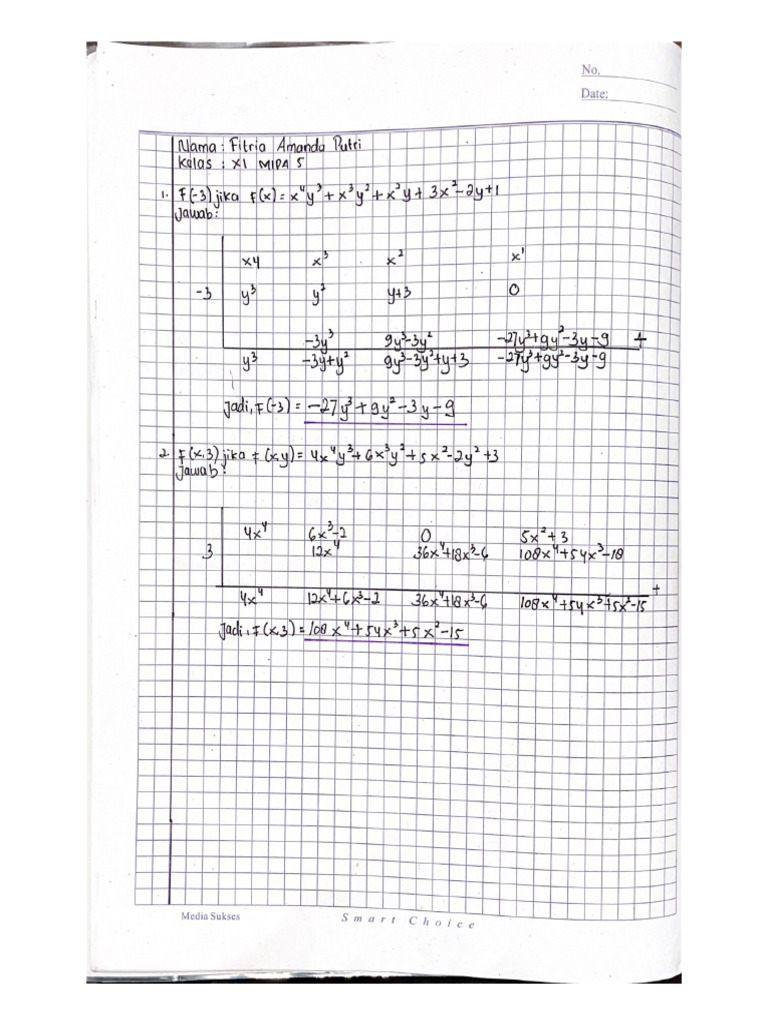 No.
Date:
Nama : Fitria Amanda Putri
Kelas : XI MIPA 5
1. F(-3) jika F(x) = x⁴y³ + x³y² + x²y + 3x² - 2y + 1
Jawab:
x4 x³ x² x¹
-3 y³ y² y+3 0
-3y³ 9y³-3y² -27y³+9y²-3y-9 +
y³ -3y+y² 9y³-3y²+y+3 -27y³+9y²-3y-9
Jadi, F(-3) = -27y³ + 9y² - 3y - 9
2. F(x,3) jika F(x,y) = 4x⁴y³ + 6x³y² + 5x² - 2y² + 3
Jawab:
4x⁴ 6x³-2 0 5x²+3
3 12x⁴ 36x⁴+18x³-6 108x⁴+54x³-18
+
4x⁴ 12x⁴+6x³-2 36x⁴+18x³-6 108x⁴+54x³+5x²-15
Jadi, F(x,3) = 108x⁴ + 54x³ + 5x² - 15
Media Sukses
Smart Choice